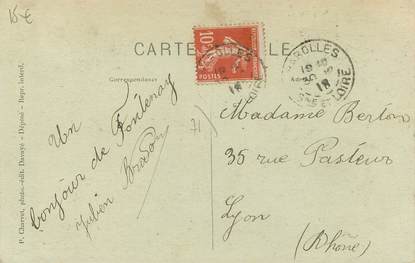 15€
CARTE POSTALE
Correspondance
10
POSTES
CHAROLLES
18
SAONE-ET-LOIRE
71
Un
bonjour de Fontenay
Julien
Madame Berton
35 rue Pasteur
Lyon
(Rhône)
P. Charvet, photo-édit. Davayé - Déposé - Repr. interd.